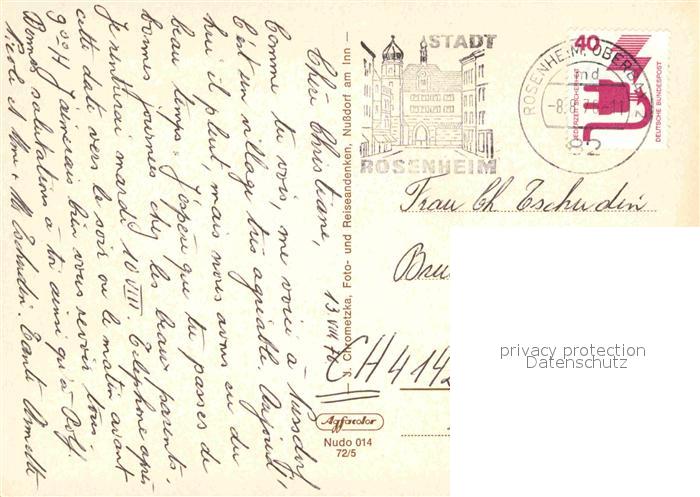 13.VIII.76
Chère Christiane,
Comme tu vois, me voici à Nussdorf,
c'est un village très agréable. Aujourd'
hui il pleut, mais nous avons eu du
beau temps. J'espère que tu passes de
bonnes journées chez les beaux parents.
Je rentrerai mardi 10 VIII. Téléphone après
cette date vers le soir ou le matin avant
9.00 H J'aimerais bien vous revoir tous.
Bonnes salutations à toi ainsi qu'à Rolf,
Nicole et Mme + M Tschudin. Tante
J. Chrometzka, Foto- und Reiseandenken, Nußdorf am Inn –
Agfacolor
Nudo 014
72/5
STADT
ROSENHEIM
ROSENHEIM, OBERBAY
2
40
JEDERZEIT SICHERHEIT
DEUTSCHE BUNDESPOST
Frau Ch. Tschudin
CH 4142
privacy protection
Datenschutz